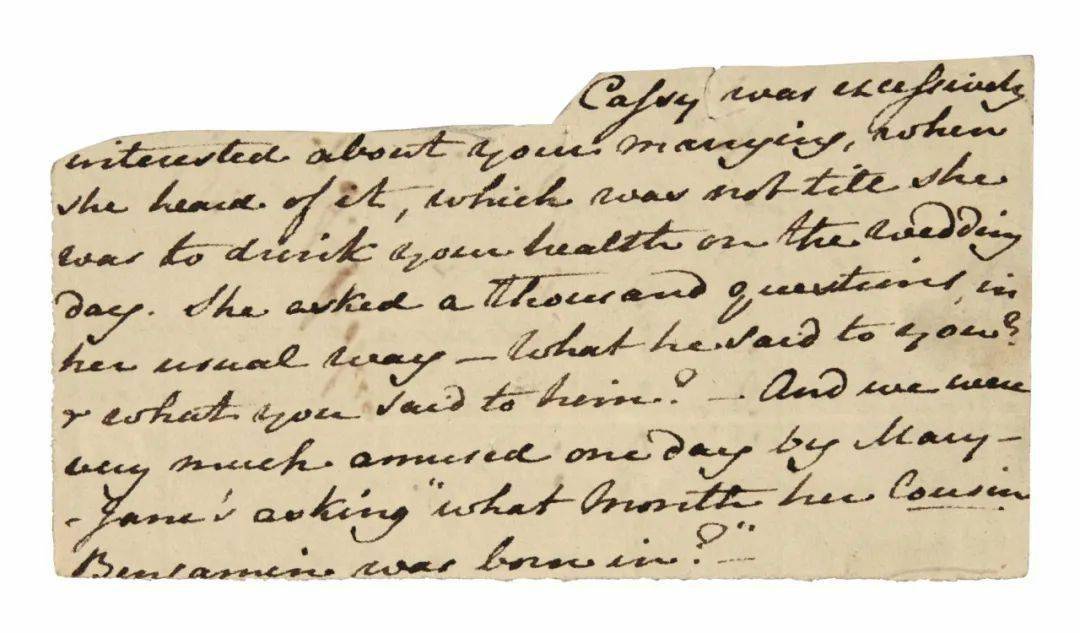 Caſsy was exceſsively
interested about your marrying, when
she heard of it, which was not till she
was to drink your health on the wedding
day. She asked a thousand questions, in
her usual way – What he said to you?
& what you said to him? – And we were
very much amused one day by Mary–
-Jane's asking "what Month her Cousin
Benjamin was born in?" –